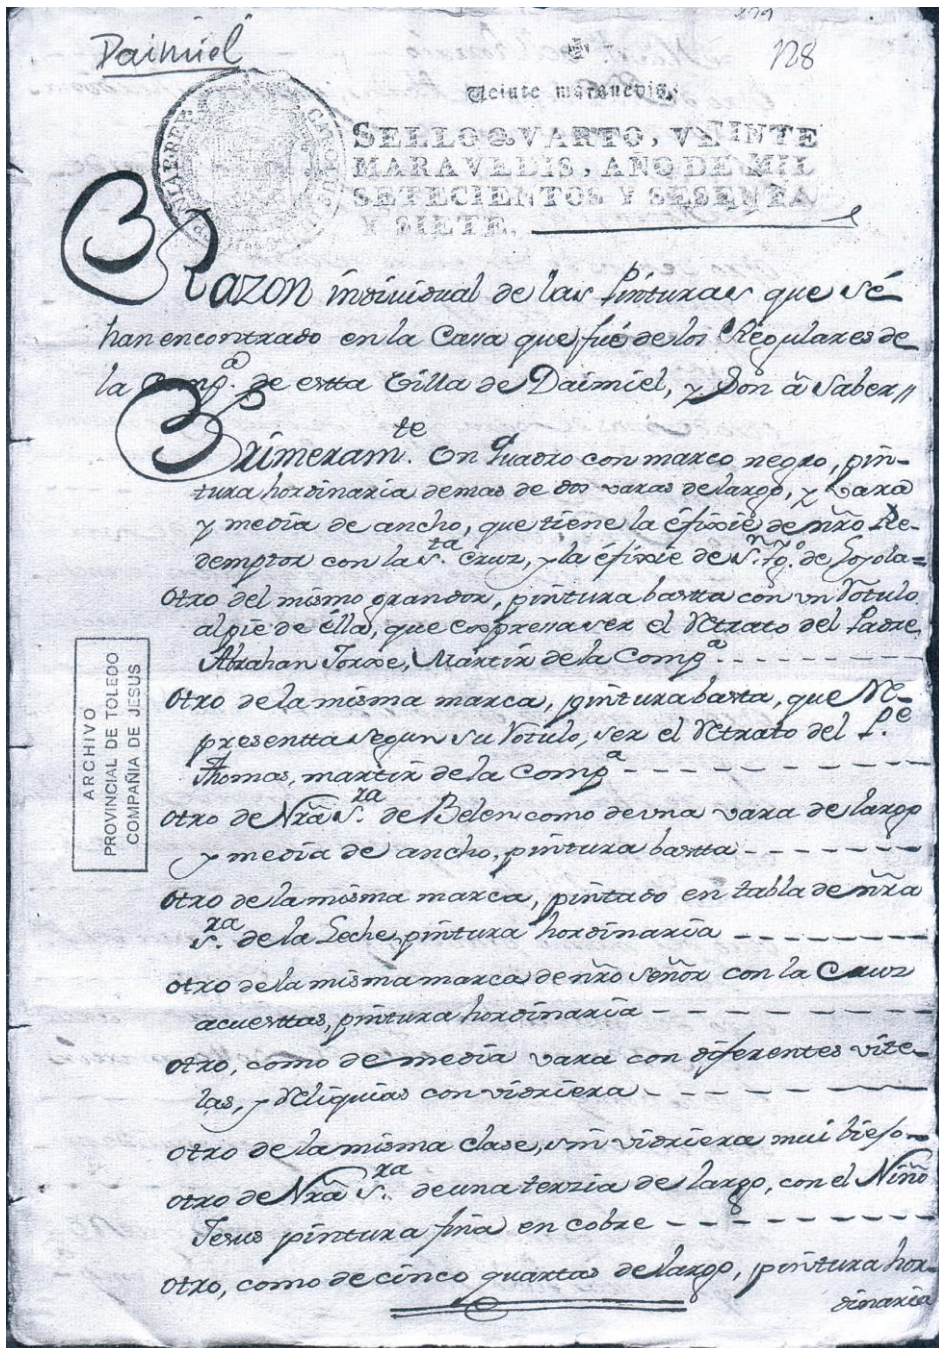 Daimiel
128
Veinte maravedis.
SELLO QVARTO, VEINTE
MARAVEDIS, AÑO DE MIL
SETECIENTOS Y SESENTA
Y SIETE.
Razon individual de las Pinturas que sé
han encontrado en la Casa que fué de los Regulares de
la Comp.ª de estta Villa de Daimiel, y son â saver,,
Primeram.te Un Quadro con marco negro, pin-
tura hordinaria demas de dos varas de largo, y vara
y media de ancho, que tiene la éfixie de nro Re-
demptor con la S.ta Cruz, y la éfixie de S.n Ygº. de Loyola=
Otro del mismo grandor, pintura bastta con vn Rotulo
al pie de élla, que expresa ser el Retrato del Padre
Abrahan Jorxe, Martir de la Comp.ª
Otro de la misma marca, pintura basta, que Re-
presentta segun su Rotulo, ser el Retrato del P.e
Thomas, martir de la Comp.ª
Otro de Nrã S.ra de Belen como de vna vara de largo
y media de ancho, pintura bastta
Otro de la misma marca, pintado en tabla de nrã
S.ra de la Leche, pintura hordinaria
Otro de la misma marca de nro Señor con la Cruz
acuesttas, pintura hordinaria
Otro, como de media vara con diferentes vite-
las, y Reliquias con vidriera
Otro de la misma clase, sin vidriera mui biejo
Otro de Nrã S.ra de una terzia de largo, con el Niño
Jesus pintura fina en cobre
Otro, como de cinco quartas de largo, pintura hor-
dinaria
ARCHIVO
PROVINCIAL DE TOLEDO
COMPAÑIA DE JESUS